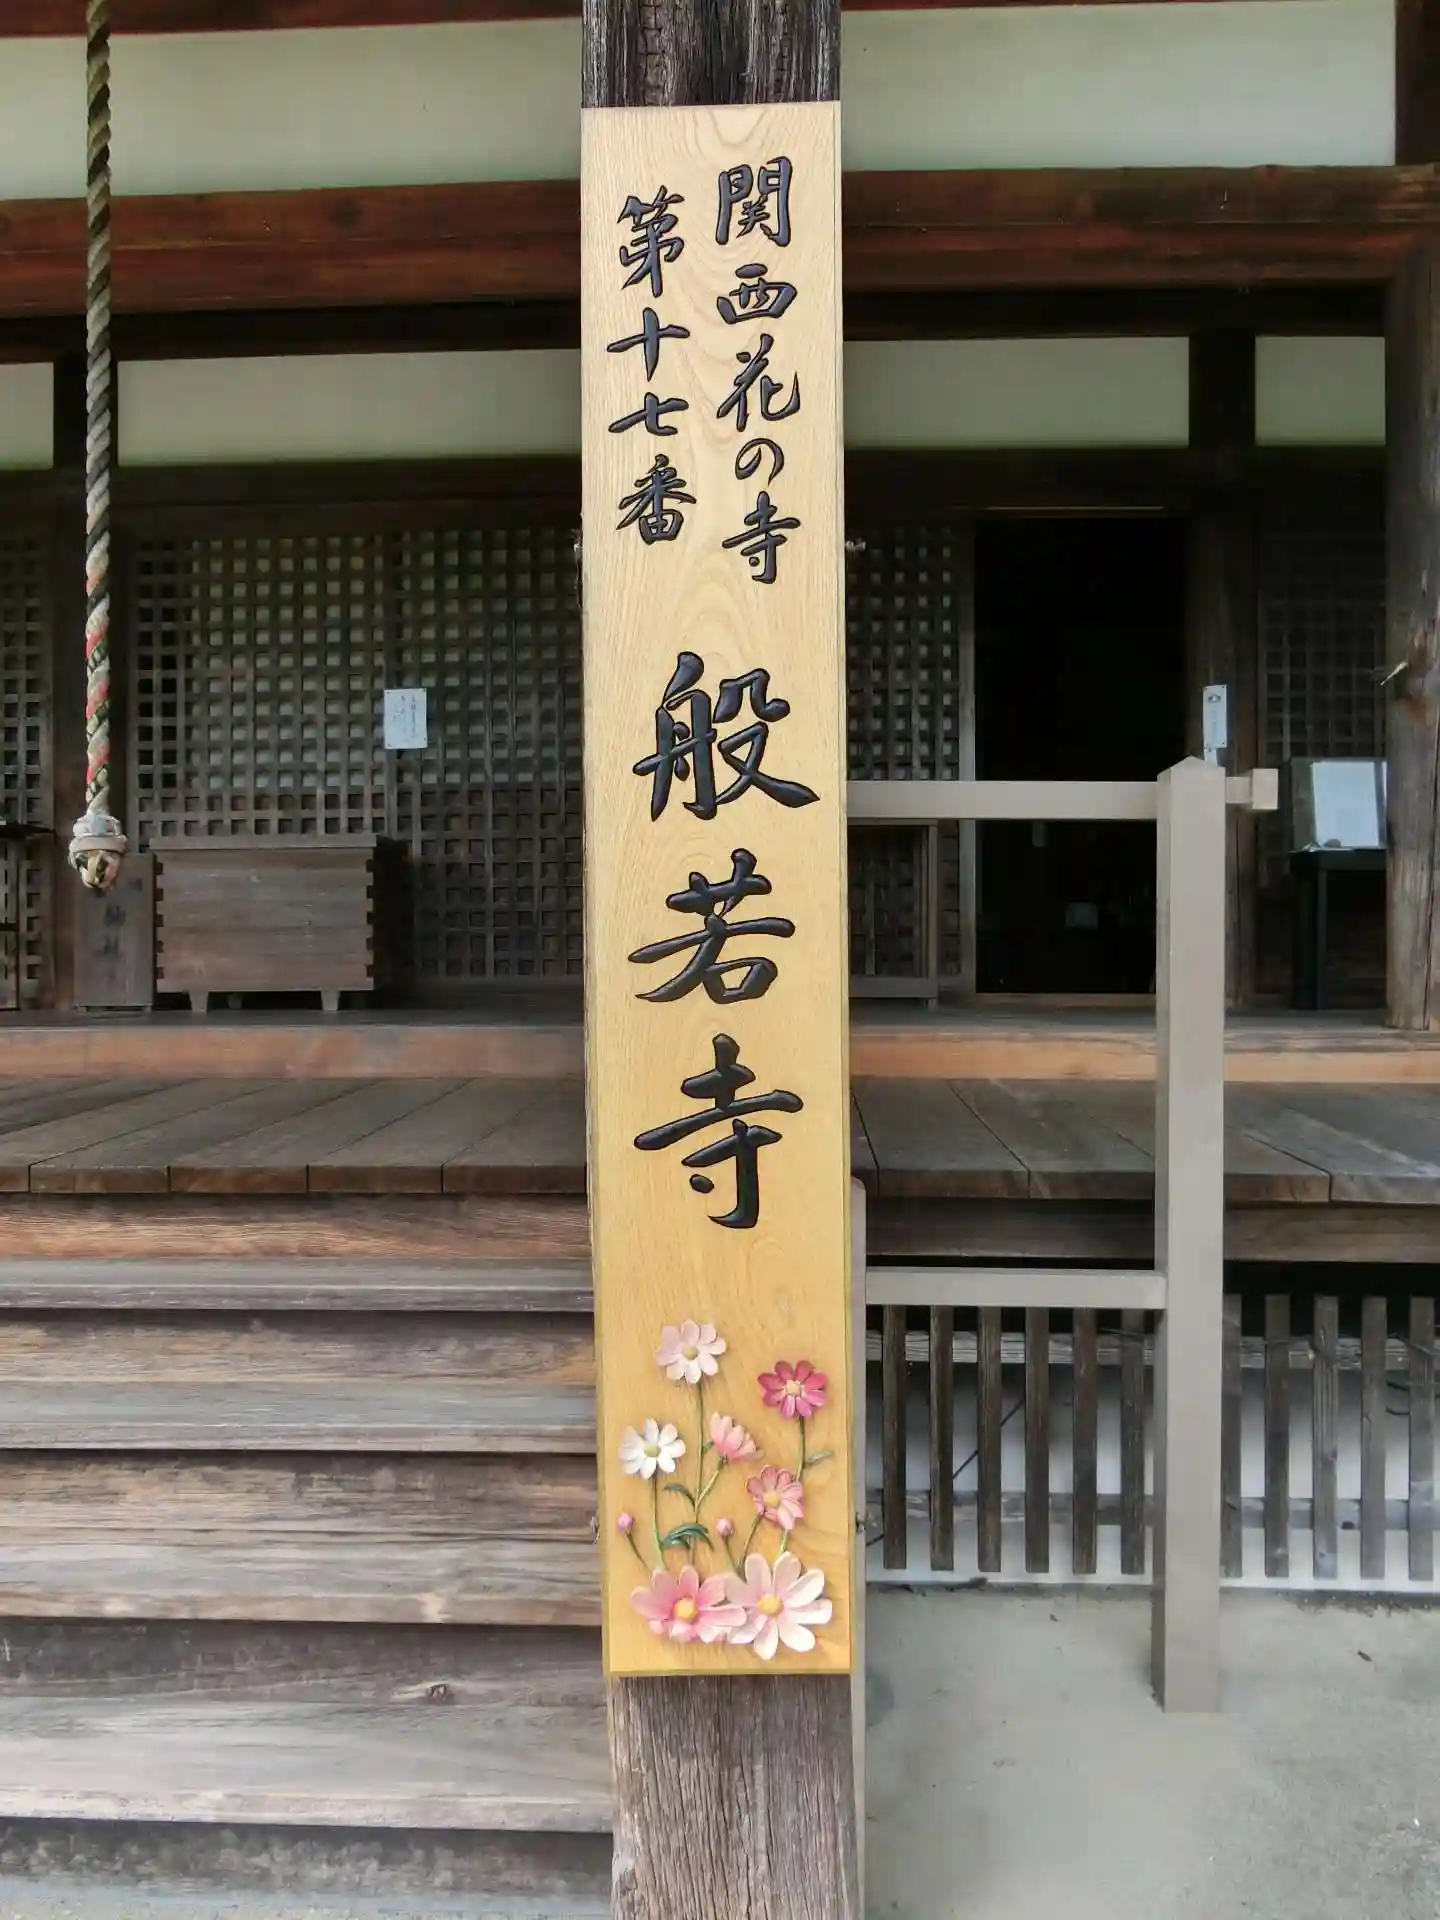 関西花の寺
第十七番
般若寺